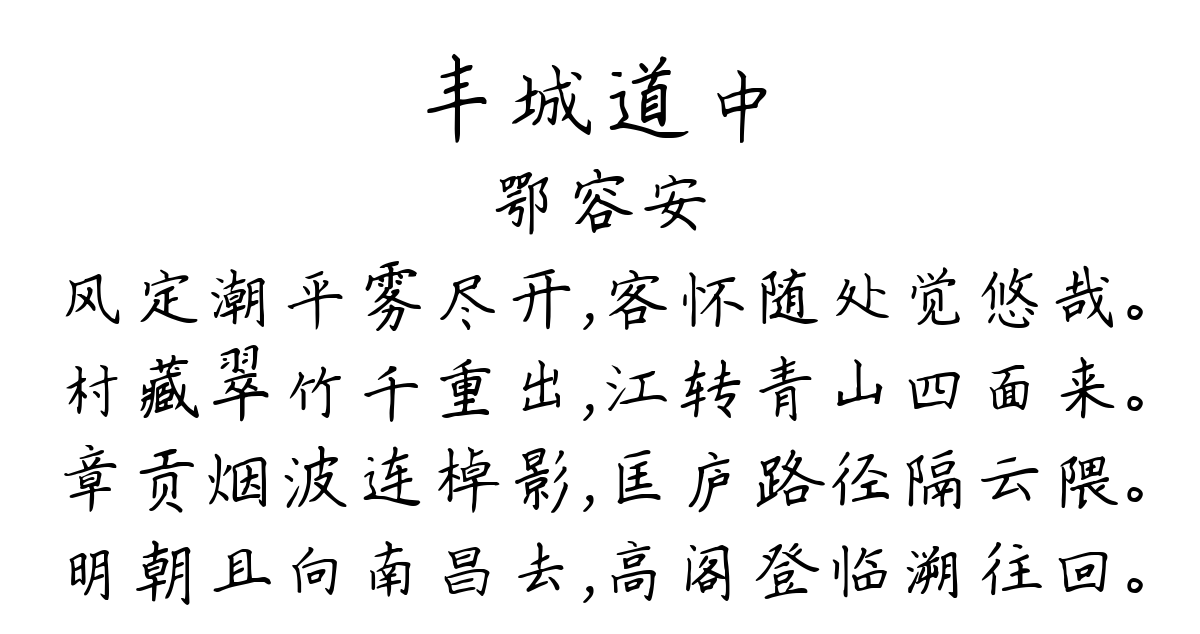 丰城道中
鄂容安
风定潮平雾尽开,客怀随处觉悠哉。
村藏翠竹千重出,江转青山四面来。
章贡烟波连棹影,匡庐路径隔云隈。
明朝且向南昌去,高阁登临溯往回。